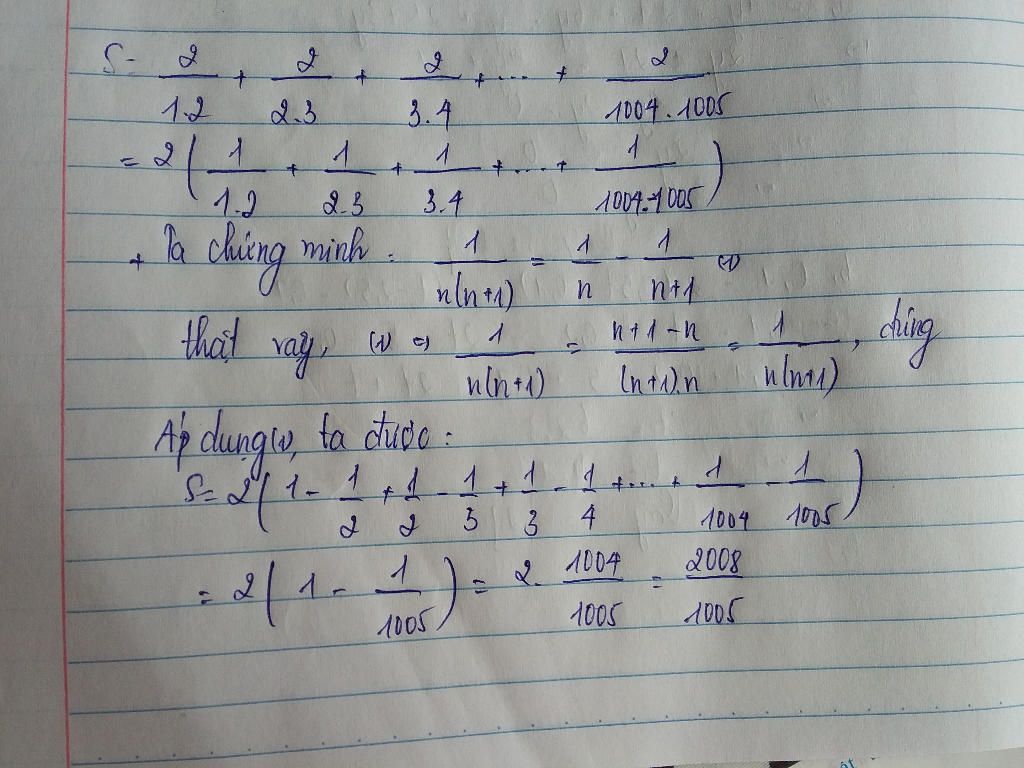 S = 2/1.2 + 2/2.3 + 2/3.4 + ... + 2/1004.1005
= 2(1/1.2 + 1/2.3 + 1/3.4 + ... + 1/1004.1005)
+ Ta chứng minh: 1/n(n+1) = 1/n - 1/n+1 (1)
thật vậy, (1) => 1/n(n+1) = n+1-n/(n+1).n = 1/n(n+1), đúng
Áp dụng (1), ta được:
S = 2(1 - 1/2 + 1/2 - 1/3 + 1/3 - 1/4 + ... + 1/1004 - 1/1005)
= 2(1 - 1/1005) = 2. 1004/1005 = 2008/1005